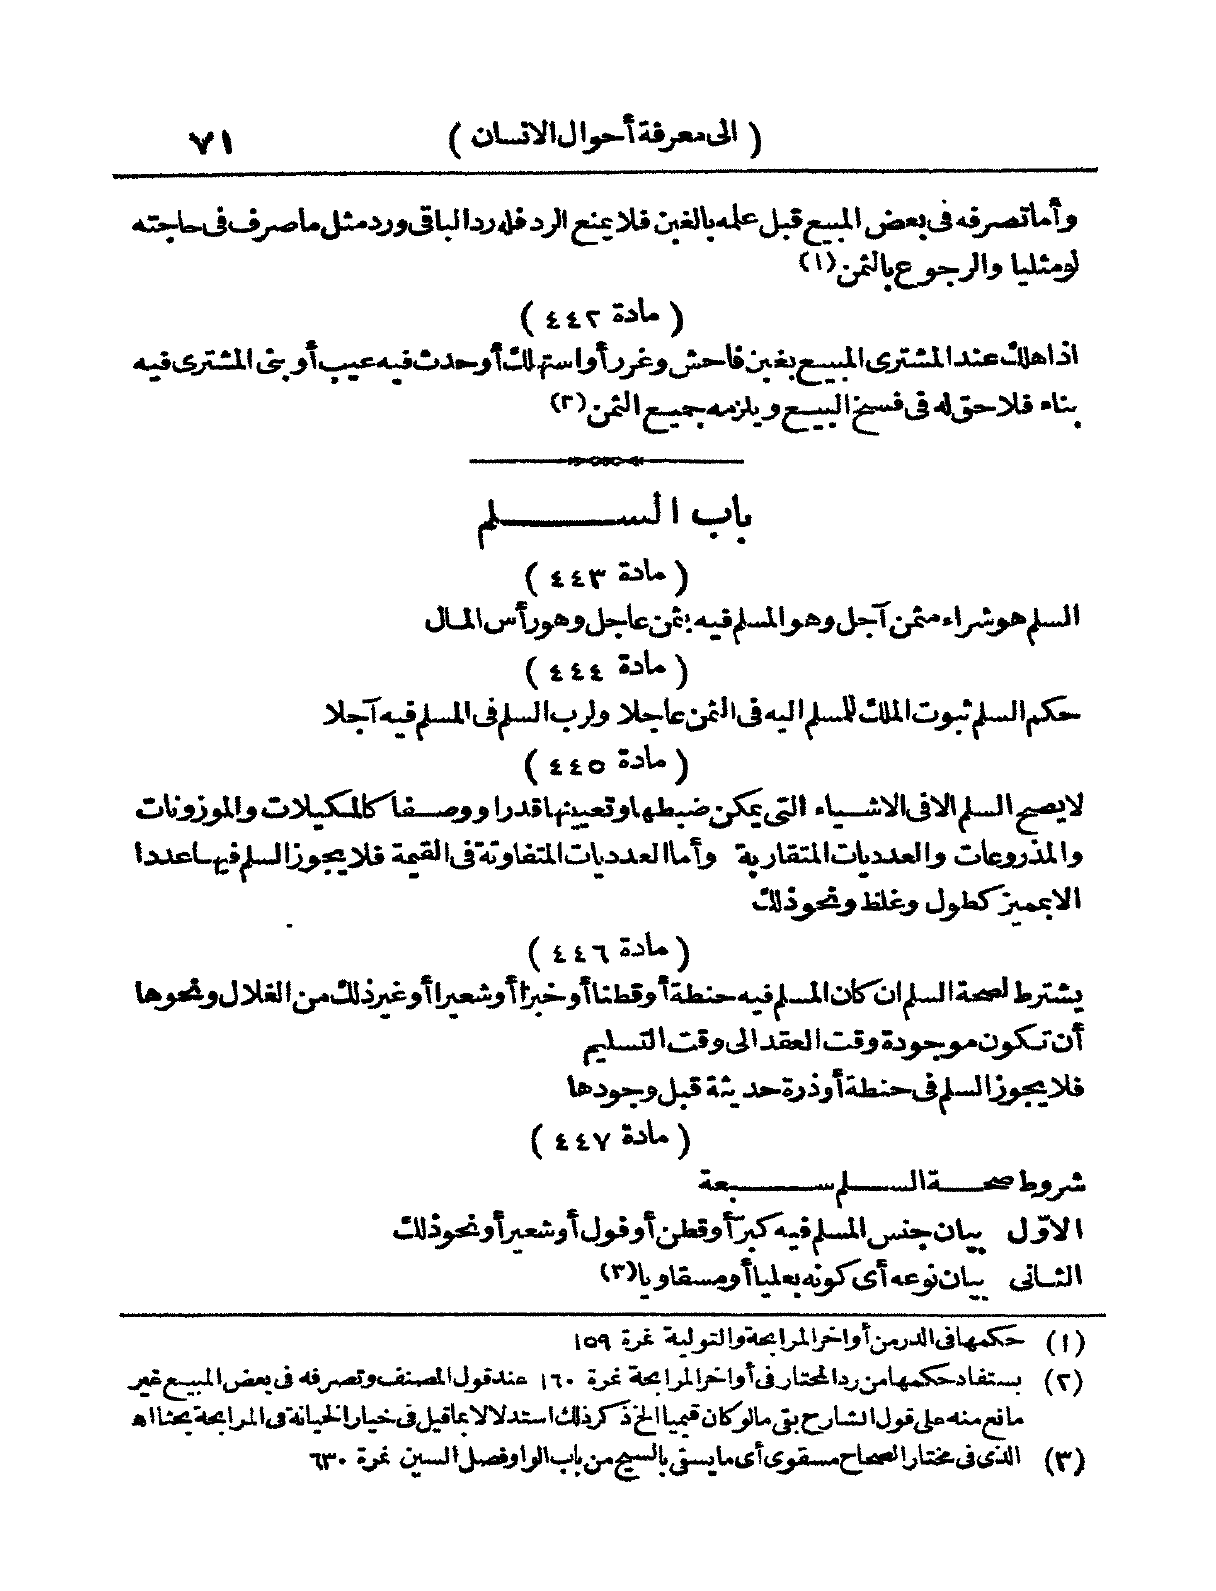 (الى معرفة أحوال الانسان) ٧١
وأما تصرفه فى بعض المبيع قبل علمه بالغبن فلا يمنع الرد فله رد الباقى ورد مثل ما صرف فى حاجته
لو مثليا والرجوع بالثمن (١)
(مادة ٤٤٢)
اذا هلك عند المشترى المبيع بغبن فاحش وغرر أو استهلك أو حدث فيه عيب أو بنى المشترى فيه
بناء فلا حق له فى فسخ البيع ويلزمه جميع الثمن (٢)
باب الســـلم
(مادة ٤٤٣)
السلم هو شراء مثمن آجل وهو المسلم فيه بثمن عاجل وهو رأس المال
(مادة ٤٤٤)
حكم السلم ثبوت الملك للمسلم اليه فى الثمن عاجلا ولرب السلم فى المسلم فيه آجلا
(مادة ٤٤٥)
لا يصح السلم الا فى الاشياء التى يمكن ضبطها وتعيينها قدرا ووصفا كالمكيلات والموزونات
والمذروعات والعدديات المتقاربة وأما العدديات المتفاوتة فى القيمة فلا يجوز السلم فيها عددا
الا بمميز كطول وغلظ ونحو ذلك
(مادة ٤٤٦)
يشترط لصحة السلم ان كان المسلم فيه حنطة أو قطنا أو خبزا أو شعيرا أو غير ذلك من الغلال ونحوها
أن تكون موجودة وقت العقد الى وقت التسليم
فلا يجوز السلم فى حنطة أو ذرة حديثة قبل وجودها
(مادة ٤٤٧)
شروط صحة السلم سبعة
الاوّل بيان جنس المسلم فيه كبرّ أو قطن أو فول أو شعير أو نحو ذلك
الثانى بيان نوعه أى كونه بعليا أو مسقاويا (٣)
(١) حكمها فى الدر من أواخر المرابحة والتولية نمرة ١٥٩
(٢) يستفاد حكمها من رد المحتار فى أواخر المرابحة نمرة ١٦٠ عند قول المصنف وتصرفه فى بعض المبيع غير
مانع منه على قول الشارح بقى ما لو كان قيميا الخ ذكر ذلك استدلالا بما قيل فى خيار الخيانة فى المرابحة بحثا اه
(٣) الذى فى مختار الصحاح مسقوى أى ما يسقى بالسيح من باب الواو فصل السين نمرة ٦٣٠